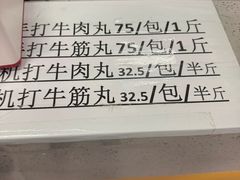 手打牛肉丸75/包/1斤
手打牛筋丸75/包/1斤
机打牛肉丸32.5/包/半斤
机打牛筋丸32.5/包/半斤